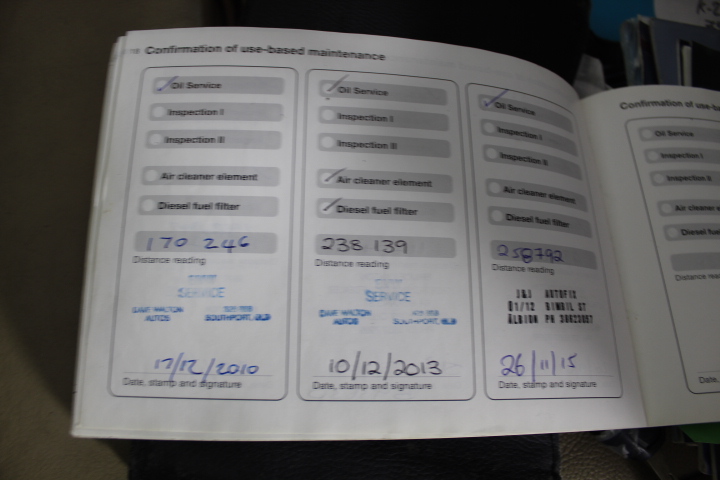 Confirmation of use-based maintenance
Oil Service
Inspection I
Inspection II
Air cleaner element
Diesel fuel filter
170 246
Distance reading
SERVICE
DAVE WALTON
AUTOS
SOUTHPORT, QLD
17/12/2010
Date, stamp and signature
Oil Service
Inspection I
Inspection II
Air cleaner element
Diesel fuel filter
238 139
Distance reading
SERVICE
DAVE WALTON
AUTOS
SOUTHPORT, QLD
10/12/2013
Date, stamp and signature
Oil Service
Inspection I
Inspection II
Air cleaner element
Diesel fuel filter
258792
Distance reading
J&J AUTOFIX
01/12 BIMBIL ST
ALBION PH
26/11/15
Date, stamp and signature
Confirmation of use-
Oil Service
Inspection I
Inspection II
Air cleaner
Diesel fuel
Distance reading
Date,